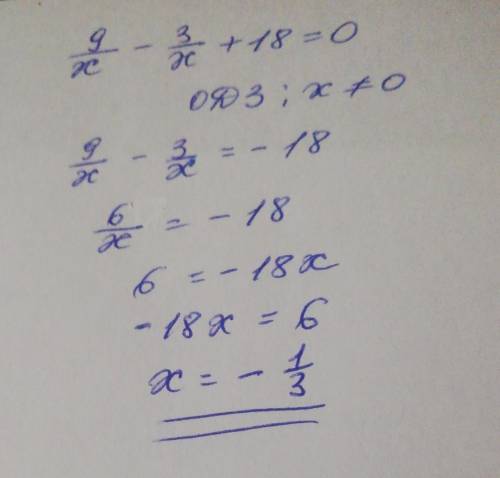 9/x - 3/x + 18 = 0
ОДЗ; x ≠ 0
9/x - 3/x = - 18
6/x = - 18
6 = - 18x
- 18x = 6
x = - 1/3